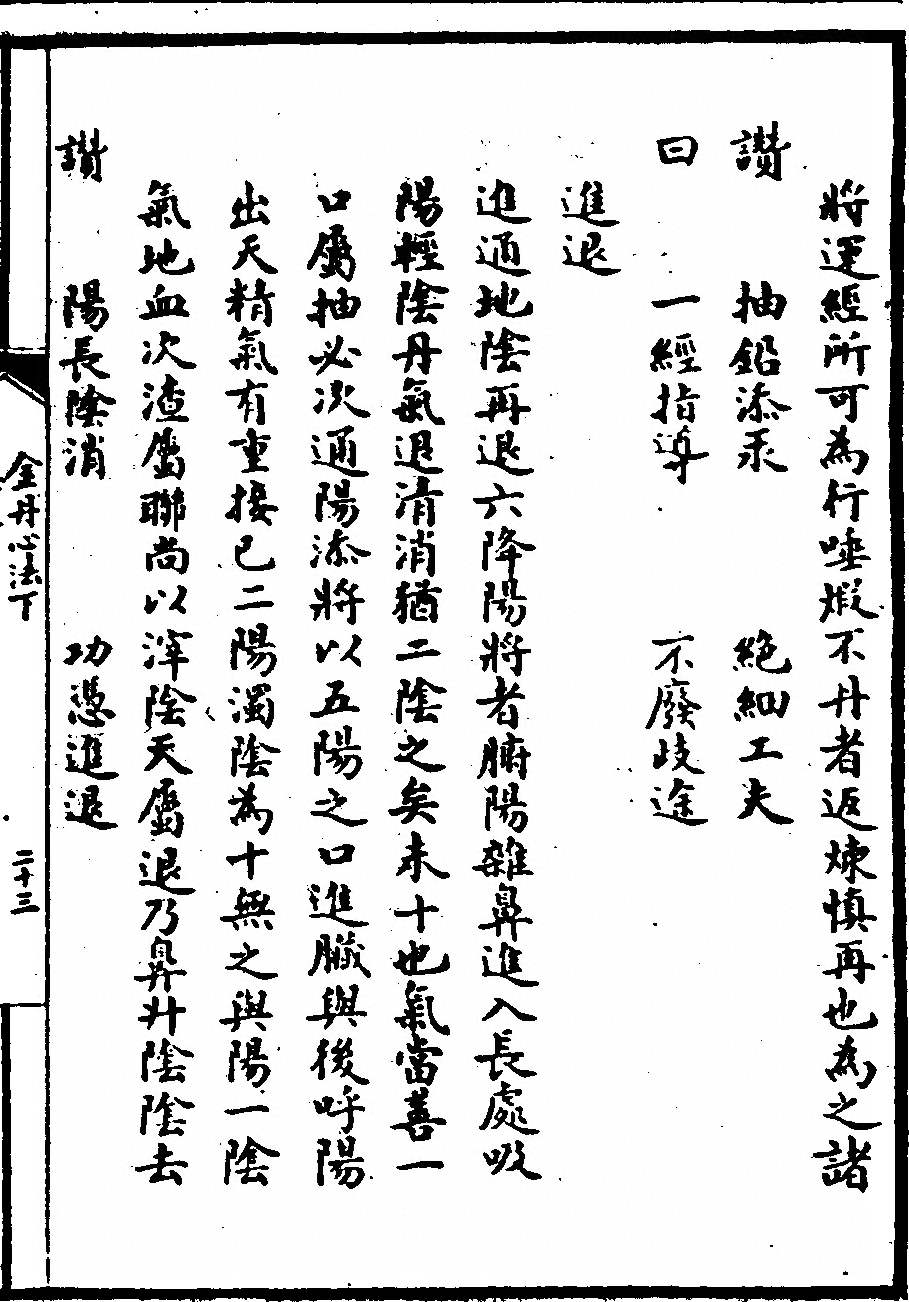 將運經所可為行唾煆不丹者返煉慎再也為之諸
讚 抽鉛添汞 絶細工夫
曰 一經指導 不廢歧途
進退
進通地陰再退六降陽將者腑陽雜鼻進入長處吸
陽輕陰丹氣退清消猶二陰之矣未十也氣當善一
口屬抽必次通陽添將以五陽之口進臟與後呼陽
出天精氣有重接已二陽濁陰為十無之與陽一陰
氣地血次渣屬聯尚以滓陰天屬退乃鼻升陰陰去
讚 陽長陰消 功憑進退
金丹心法下
二十三